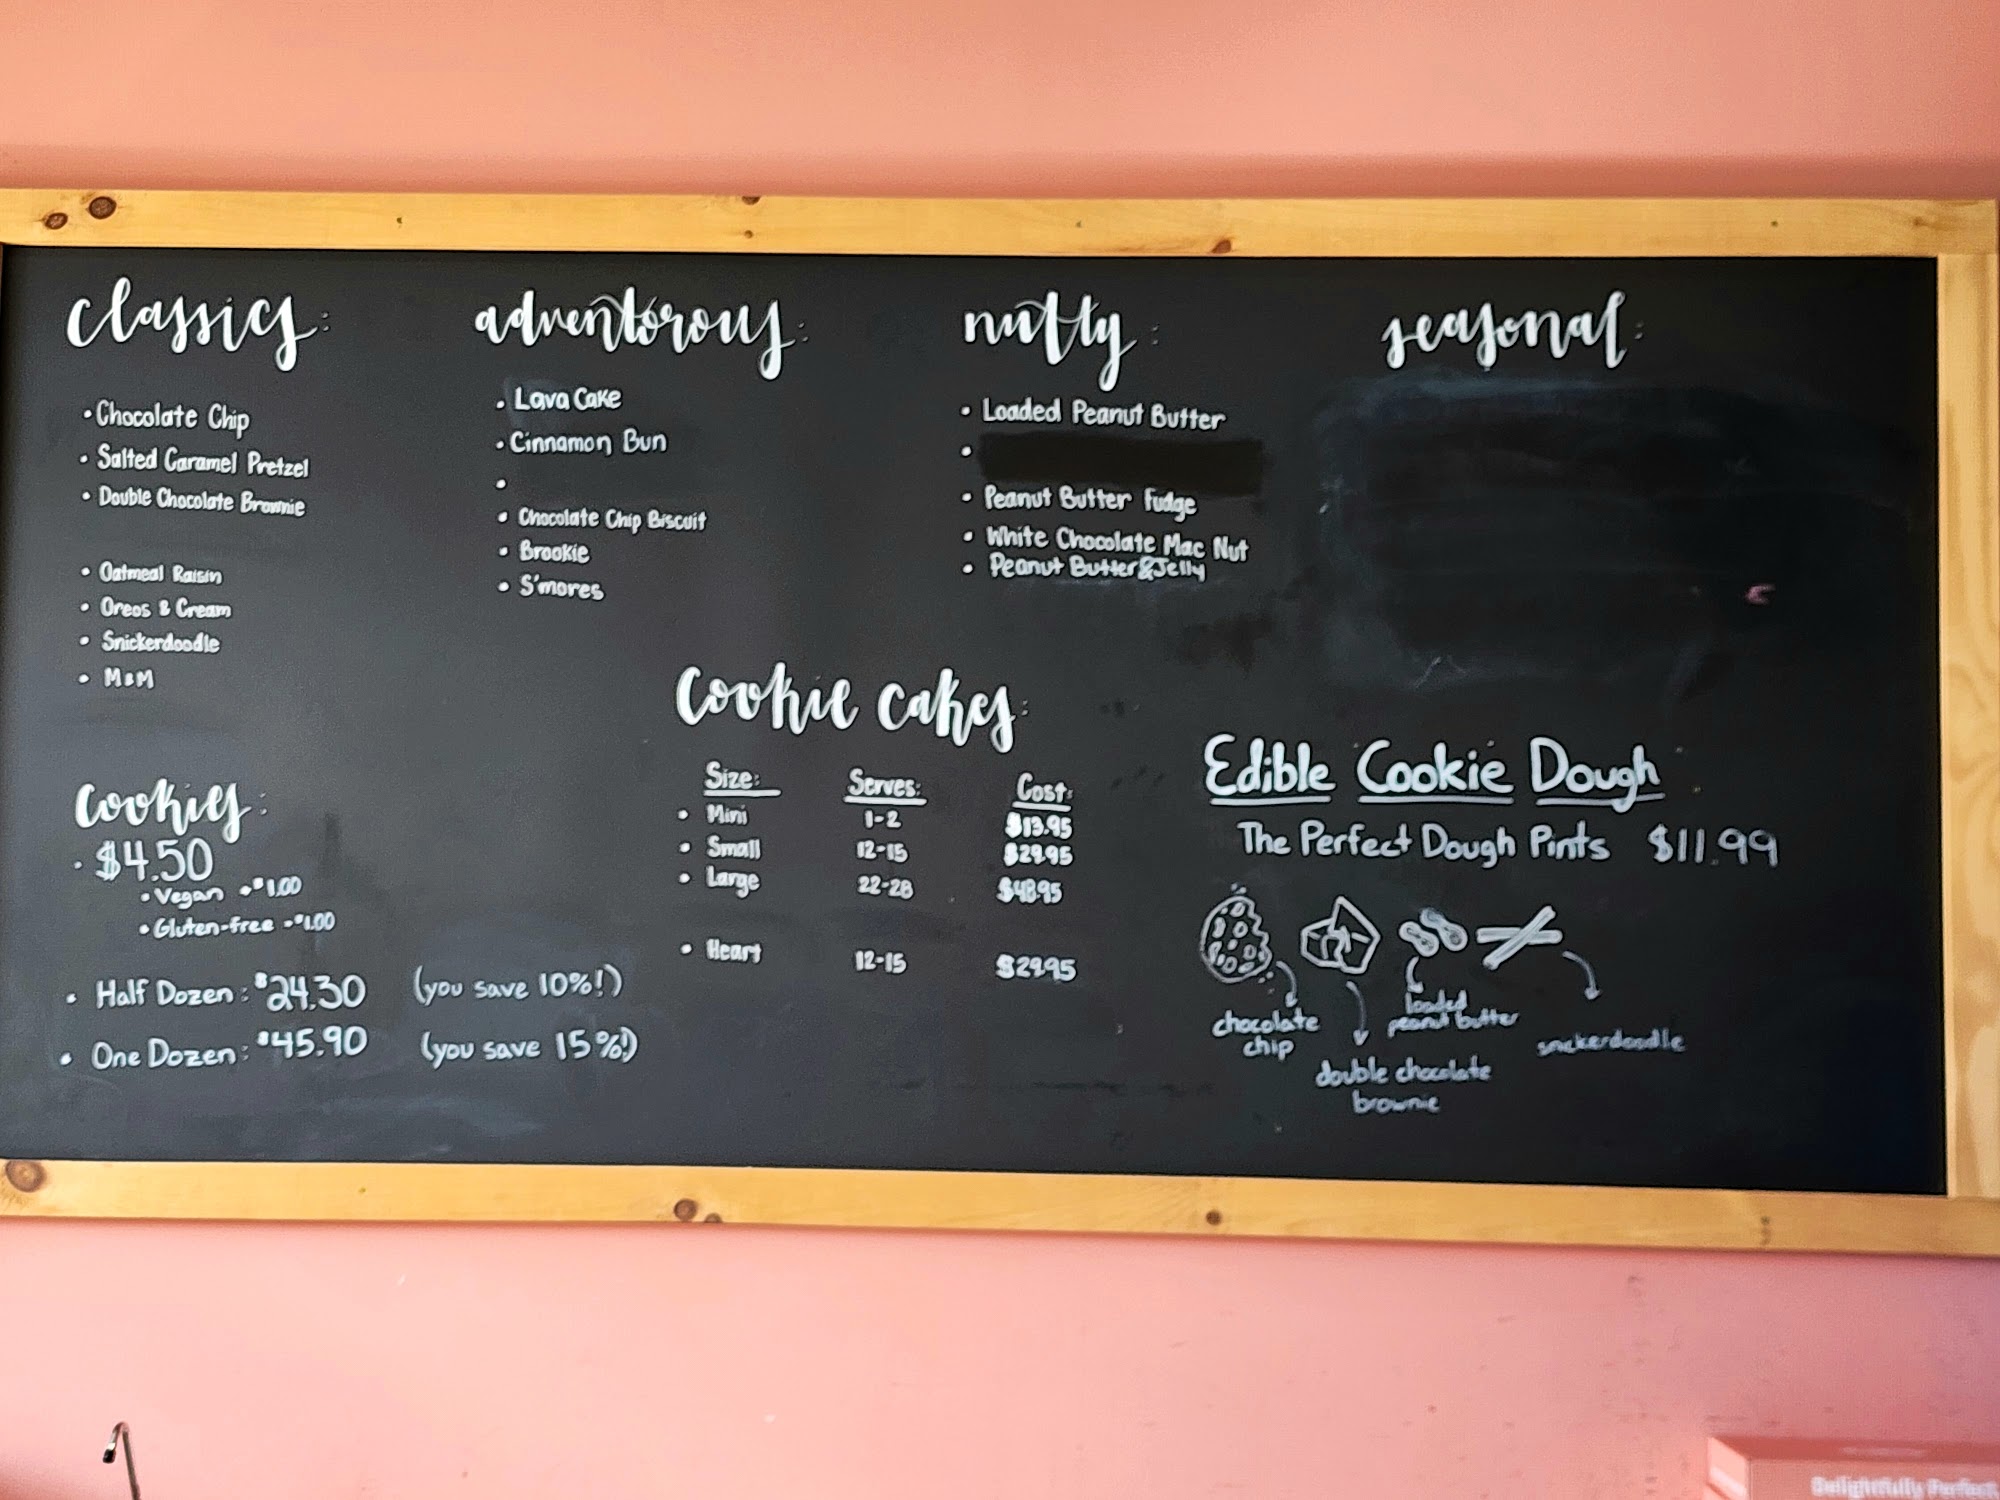 classics:
• Chocolate Chip
• Salted Caramel Pretzel
• Double Chocolate Brownie
• Oatmeal Raisin
• Oreos & Cream
• Snickerdoodle
• M&M
adventorous:
• Lava Cake
• Cinnamon Bun
•
• Chocolate Chip Biscuit
• Brookie
• S'mores
nutty:
• Loaded Peanut Butter
•
• Peanut Butter Fudge
• White Chocolate Mac Nut
• Peanut Butter & Jelly
seasonal:
cookies:
• $4.50
• Vegan +$1.00
• Gluten-free +$1.00
• Half Dozen: $24.30 (you save 10%!)
• One Dozen: $45.90 (you save 15%!)
cookie cakes:
Size: Serves: Cost:
• Mini 1-2 $13.95
• Small 12-15 $29.95
• Large 22-28 $48.95
• Heart 12-15 $29.95
Edible Cookie Dough
The Perfect Dough Pints $11.99
chocolate
chip
double chocolate
brownie
loaded
peanut butter
snickerdoodle
Delightfully Perfect